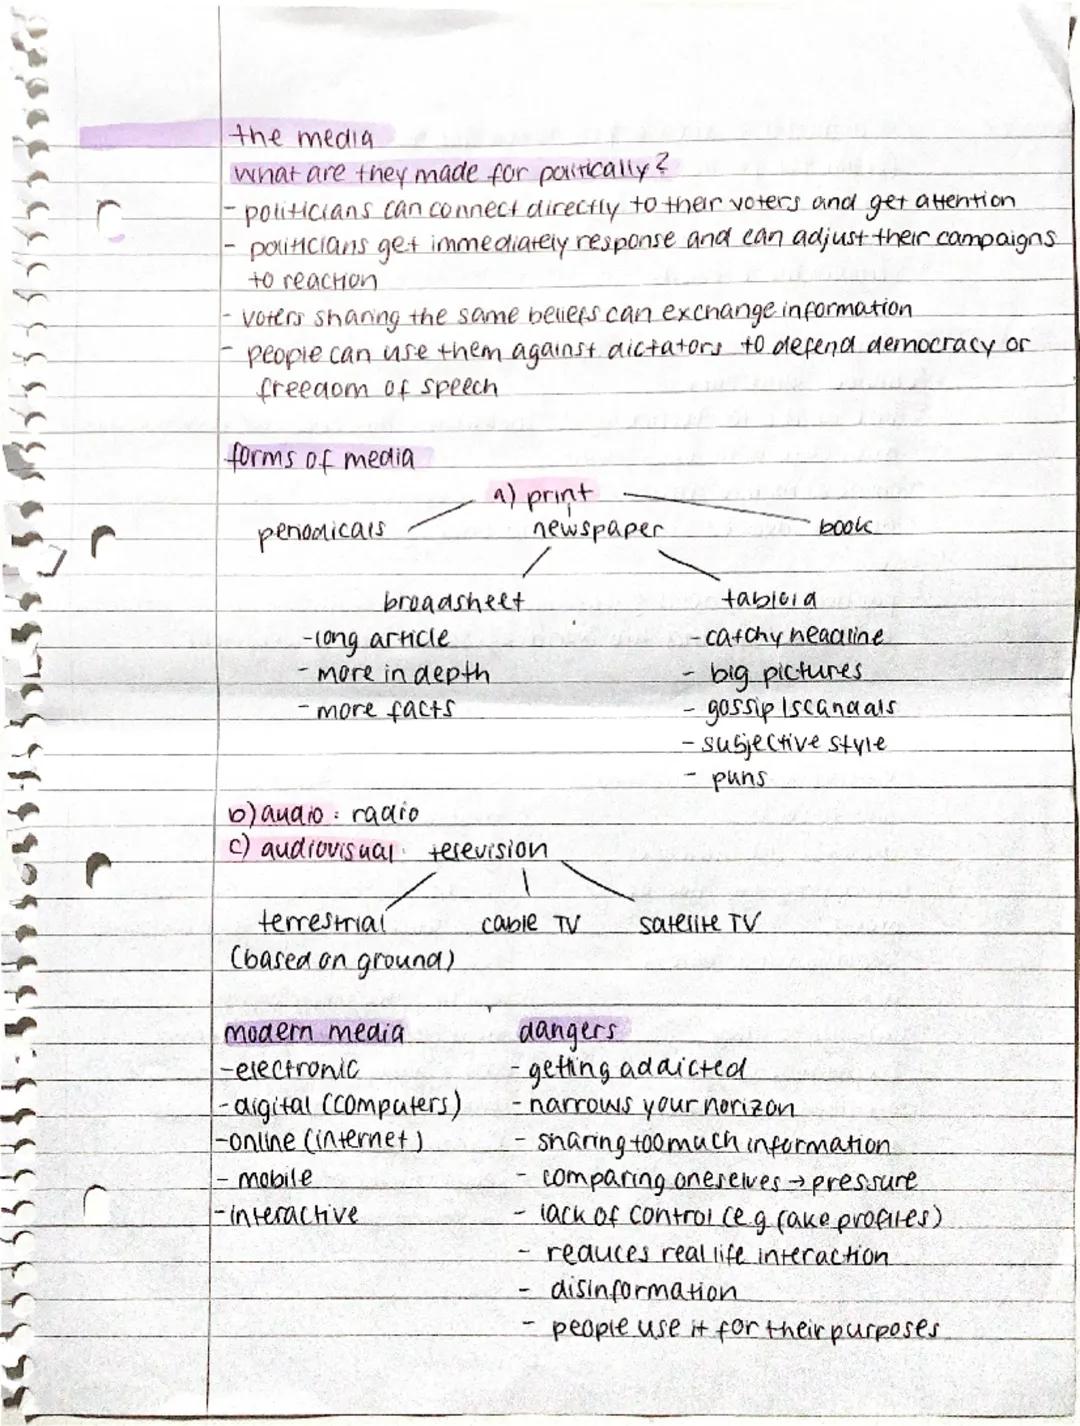 the media
what are they made for politically?
- politicians can connect directly to their voters and get attention
- politicians get immediately response and can adjust their campaigns
to reaction
- voters sharing the same beliefs can exchange information
- people can use them against dictators to defend democracy or
freedom of speech
forms of media
a) print
periodicals newspaper book
broadsheet tabloid
- long article - catchy headline
- more in depth - big pictures
- more facts - gossip/scandals
- subjective style
- puns
b) audio: radio
c) audiovisual: television
terrestrial cable TV satelite TV
(based on ground)
modern media dangers
- electronic - getting addicted
- digital (computers) - narrows your horizon
- online (internet) - sharing too much information
- mobile - comparing oneselves → pressure
- interactive - lack of control (e.g fake profiles)
- reduces real life interaction
- disinformation
- people use it for their purposes